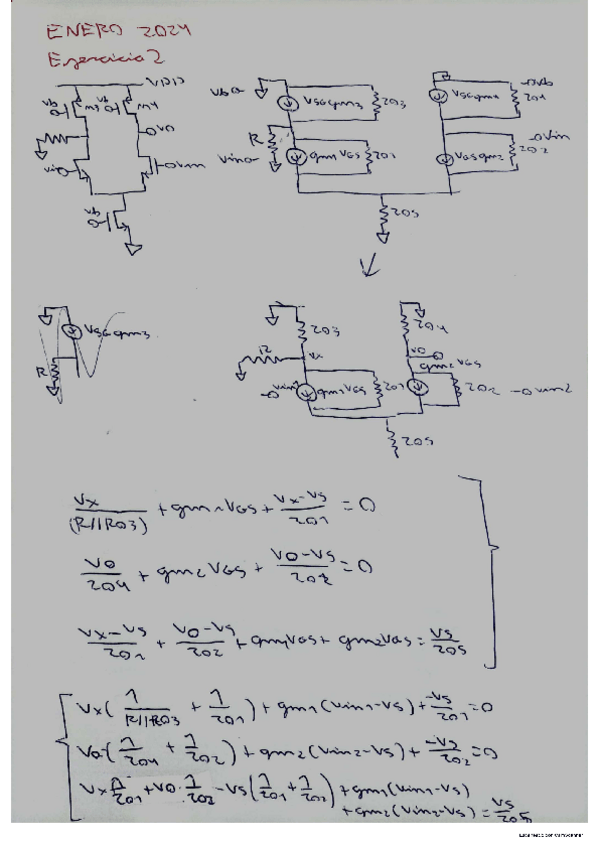 ENERO 2024
Ejercicio 2
VDD
Vb
M3
Vb
M4
VO
Vin
Vb
Vb
VSG gm3
ro3
R
Vin
gm VGS
ro1
ro5
VSG gm4
Vb
ro4
Vin
VGS gm2
ro2
VSG gm3
R
ro3
R
Vx
Vin
gm1 VGS
ro1
ro4
VO
gm2 VGS
ro2
Vin2
ro5
Vx/(R//RO3) + gm1 VGS + (Vx-VS)/ro1 = 0
VO/ro4 + gm2 VGS + (VO-VS)/ro2 = 0
(Vx-VS)/ro1 + (VO-VS)/ro2 + gm1 VGS + gm2 VGS = VS/ro5
Vx(1/(R//RO3) + 1/ro1) + gm1(Vin1-VS) + -VS/ro1 = 0
VO(1/ro4 + 1/ro2) + gm2(Vin2-VS) + -VS/ro2 = 0
Vx 1/ro1 + VO · 1/ro2 - VS(1/ro1 + 1/ro2) + gm1(Vin1-VS)
+ gm2(Vin2-VS) = VS/ro5